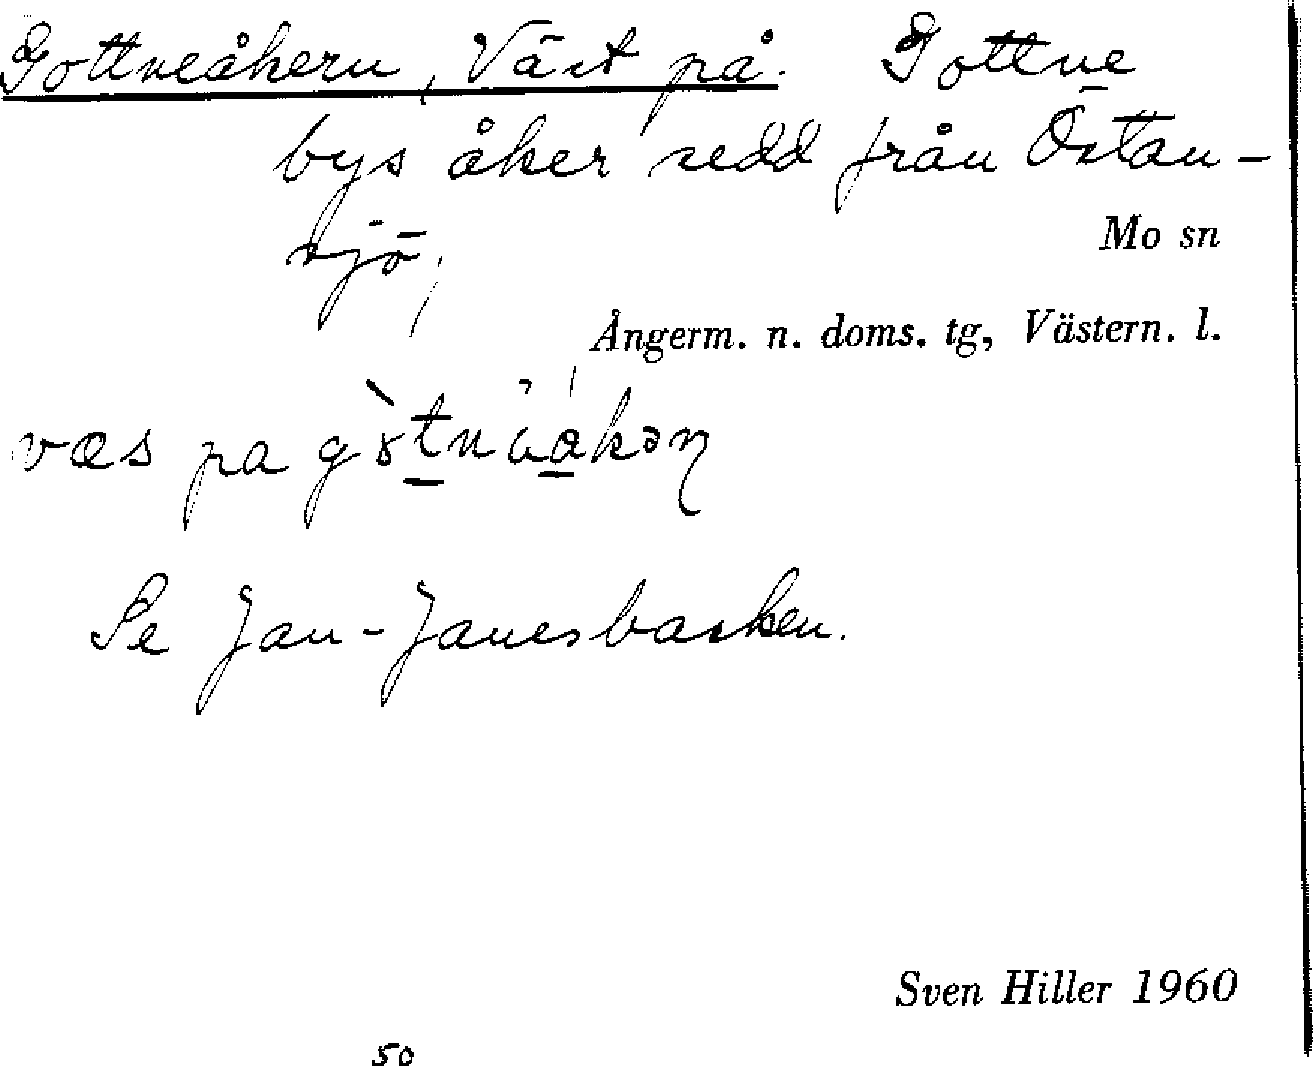 Gottneåkern, Väst på. Gottne
bys åker sedd från Östan-
sjö;
Mo sn
Ångerm. n. doms. tg, Västern. l.
væs pa
Se Jan-Janesbacken.
Sven Hiller 1960
50